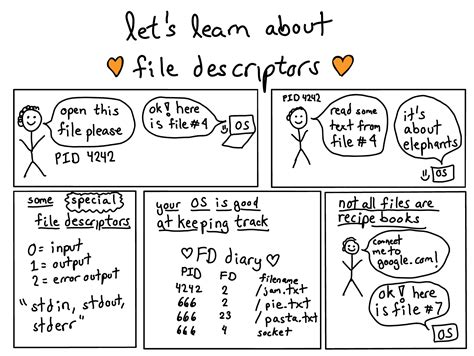 let's learn about
file descriptors
open this
file please
PID 4242
ok! here
is file #4
OS
PID 4242
read some
text from
file #4
it's
about
elephants
OS
some special
file descriptors
0 = input
1 = output
2 = error output
"stdin, stdout,
stderr"
your OS is good
at keeping track
FD diary
PID FD filename
4242 2 /jam.txt
666 2 /pie.txt
666 23 /pasta.txt
666 4 socket
not all files are
recipe books
connect
me to
google.com!
ok! here
is file #7
OS